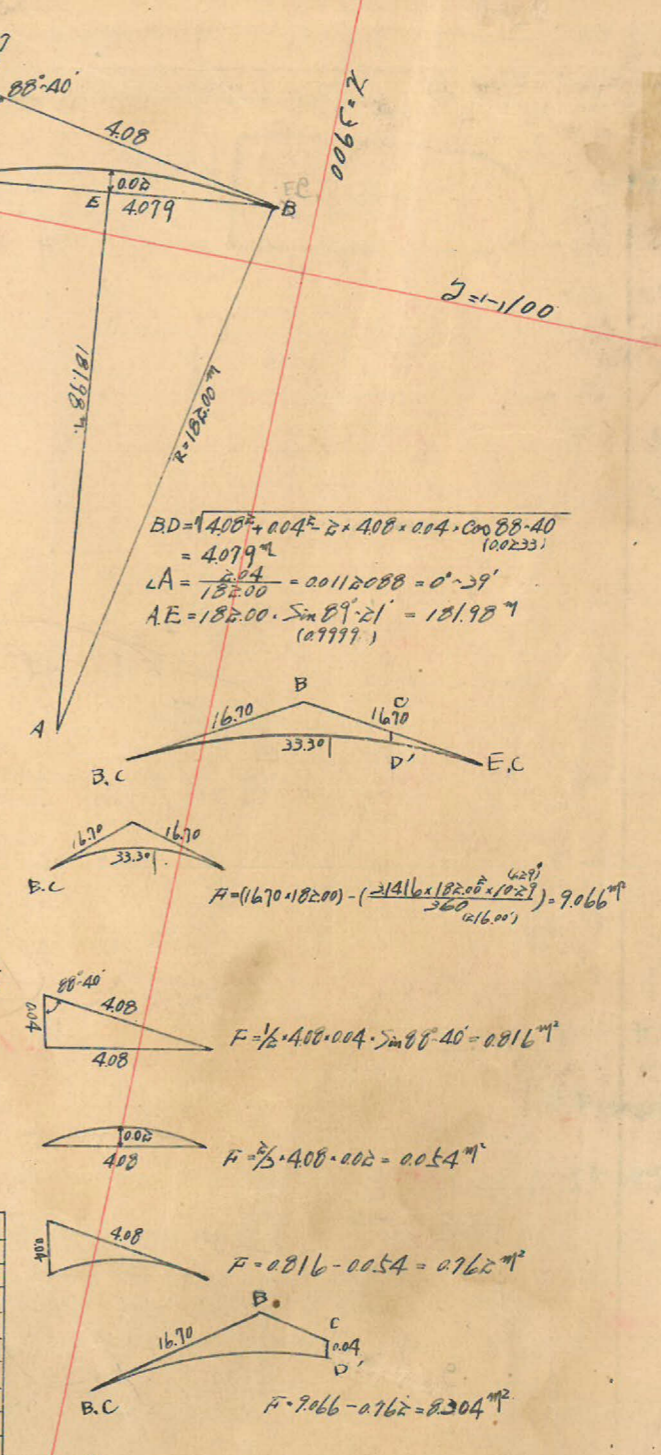 88°-40'
4.08
X=3900
0.02
E
4.079
B
Y=-1100
181.98 m
R=182.00 m
B.D=√4.08²+0.04²-2×4.08×0.04×Cos 88-40
(0.0233)
= 4.079 m
∠A = 2.04/182.00 = 0.0112088 = 0°-39'
A.E=182.00·Sin 89°-21' = 181.98 m
(0.9999)
A
B
16.70
C
16.70
33.30
D'
B.C
E.C
16.70
16.70
33.30
B.C
F=(16.70×182.00)-(3.1416×182.00²×10-29/360)=9.066 m²
88°-40'
0.04
4.08
4.08
F=1/2·4.08·0.04·Sin 88-40'=0.816 m²
0.02
4.08
F=2/3·4.08·0.02=0.054 m²
0.04
4.08
F=0.816-0.054=0.762 m²
B
16.70
C
0.04
D'
B.C
F=9.066-0.762=8.304 m²